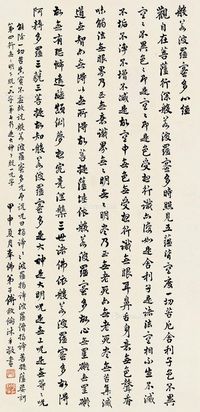 般若波羅蜜多心經
觀自在菩薩行深般若波羅蜜多時照見五蘊皆空度一切苦厄舍利子色不異
空空不異色色即是空空即是色受想行識亦復如是舍利子是諸法空相不生不滅
不垢不淨不增不減是故空中無色無受想行識無眼耳鼻舌身意無色聲香
味觸法無眼界乃至無意識界無無明亦無無明盡乃至無老死亦無老死盡無苦集滅
道無智亦無得以無所得故菩提薩埵依般若波羅蜜多故心無罣礙無罣礙
故無有恐怖遠離顛倒夢想究竟涅槃三世諸佛依般若波羅蜜多故得
阿耨多羅三藐三菩提故知般若波羅蜜多是大神咒是大明咒是無上咒是無等等咒
能除一切苦真實不虛故說般若波羅蜜多咒即說咒曰
甲申夏月奉佛弟子沐手敬書